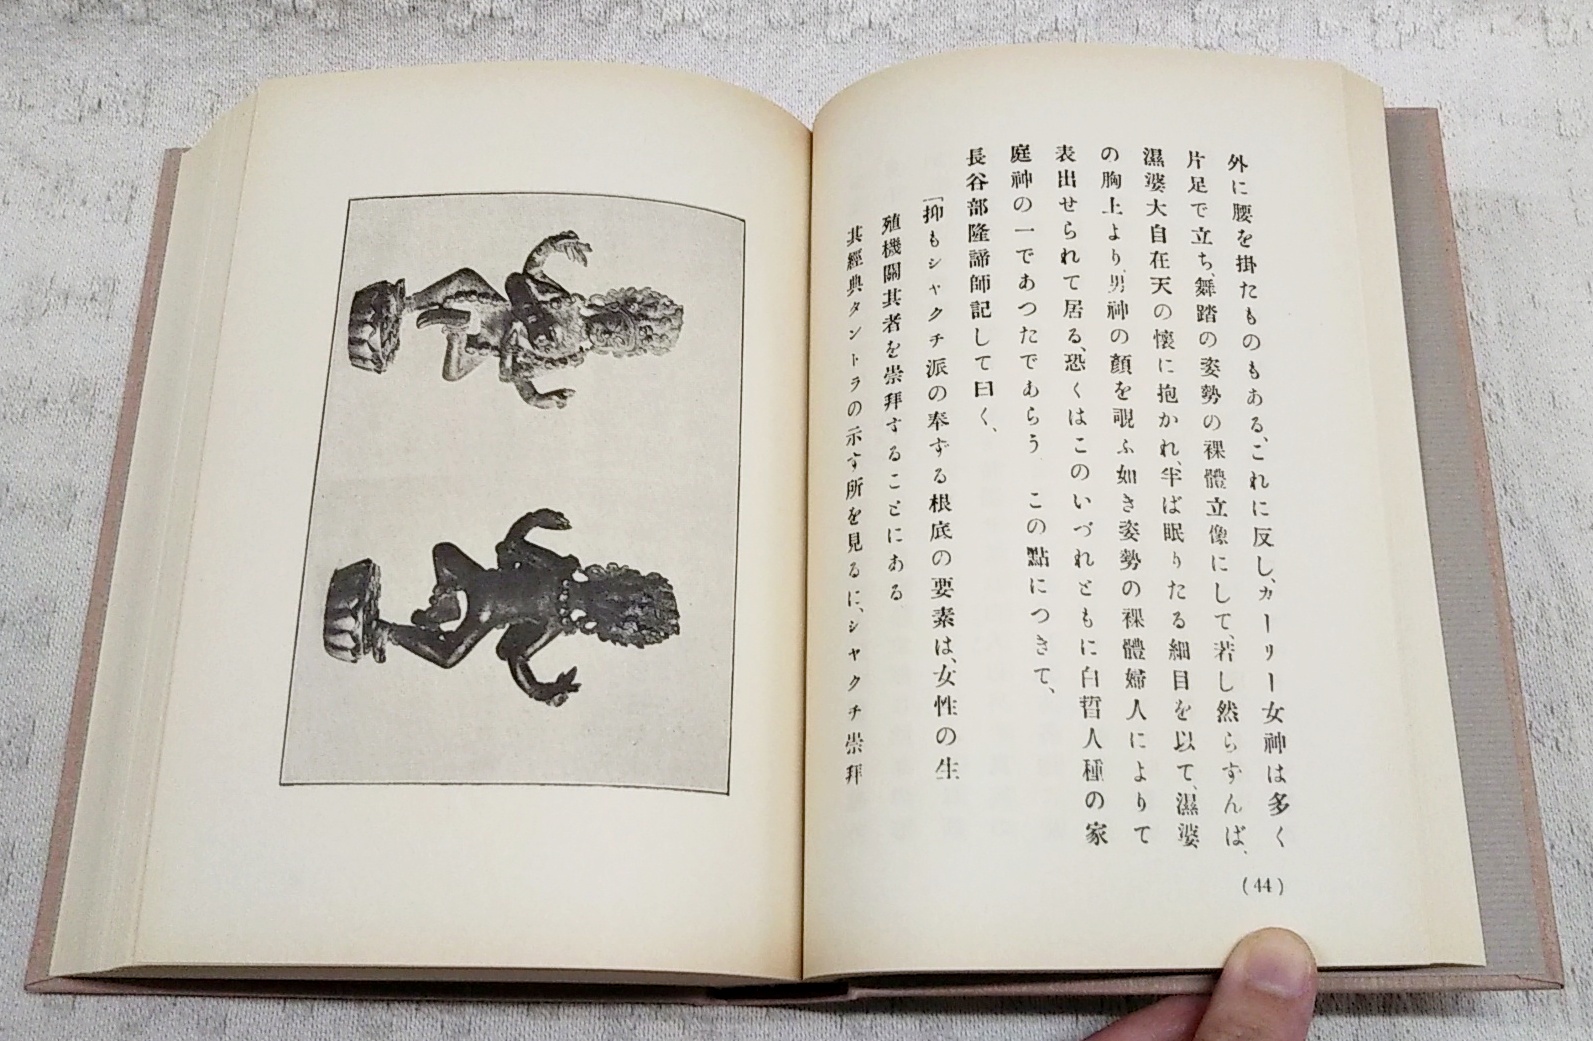 外に腰を掛たものもある、これに反し、カーリー女神は多く
片足で立ち、舞踏の姿勢の裸體立像にして、若し然らずんば、
濕婆大自在天の懷に抱かれ、半ば眠りたる細目を以て、濕婆
の胸上より、男神の顏を覗ふ如き姿勢の裸體婦人によりて
表出せられて居る、恐くはこのいづれともに白晢人種の家
庭神の一であつたであらう この點につきて、
長谷部隆諦師記して曰く、
「抑もシャクチ派の奉ずる根底の要素は、女性の生
殖機關其者を崇拜することにある
其經典タントラの示す所を見るに、シャクチ崇拜
(44)